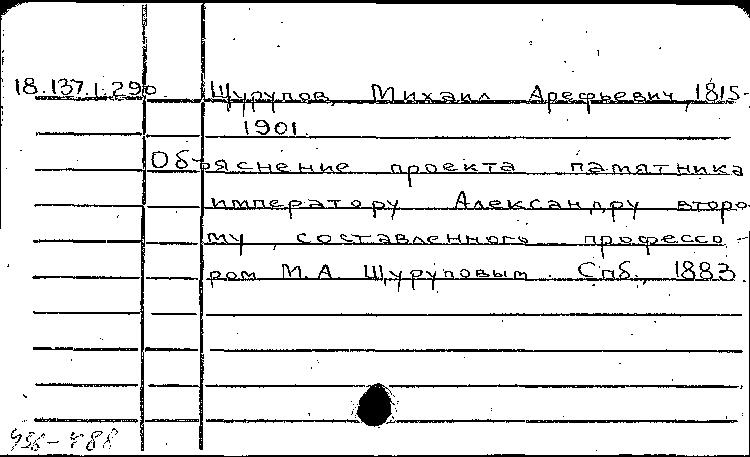 18.137.1.290 Щурупов, Михаил Арефьевич, 1815-
1901.
Объяснение проекта памятника
императору Александру второ-
му, составленного профессо-
ром М.А. Щуруповым. Спб., 1883.